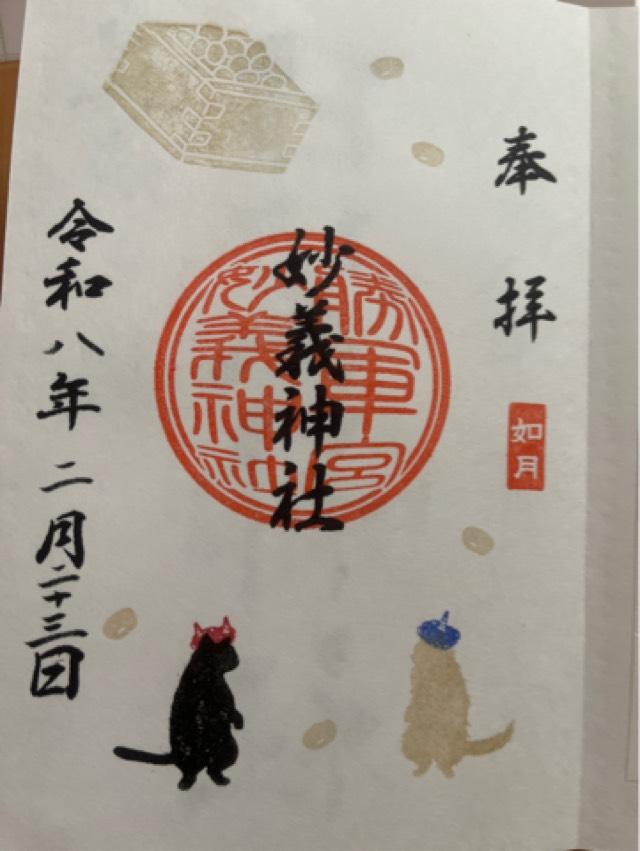 奉拝
如月
妙義神社
勝軍宮
妙義神社
令和八年二月二十三日